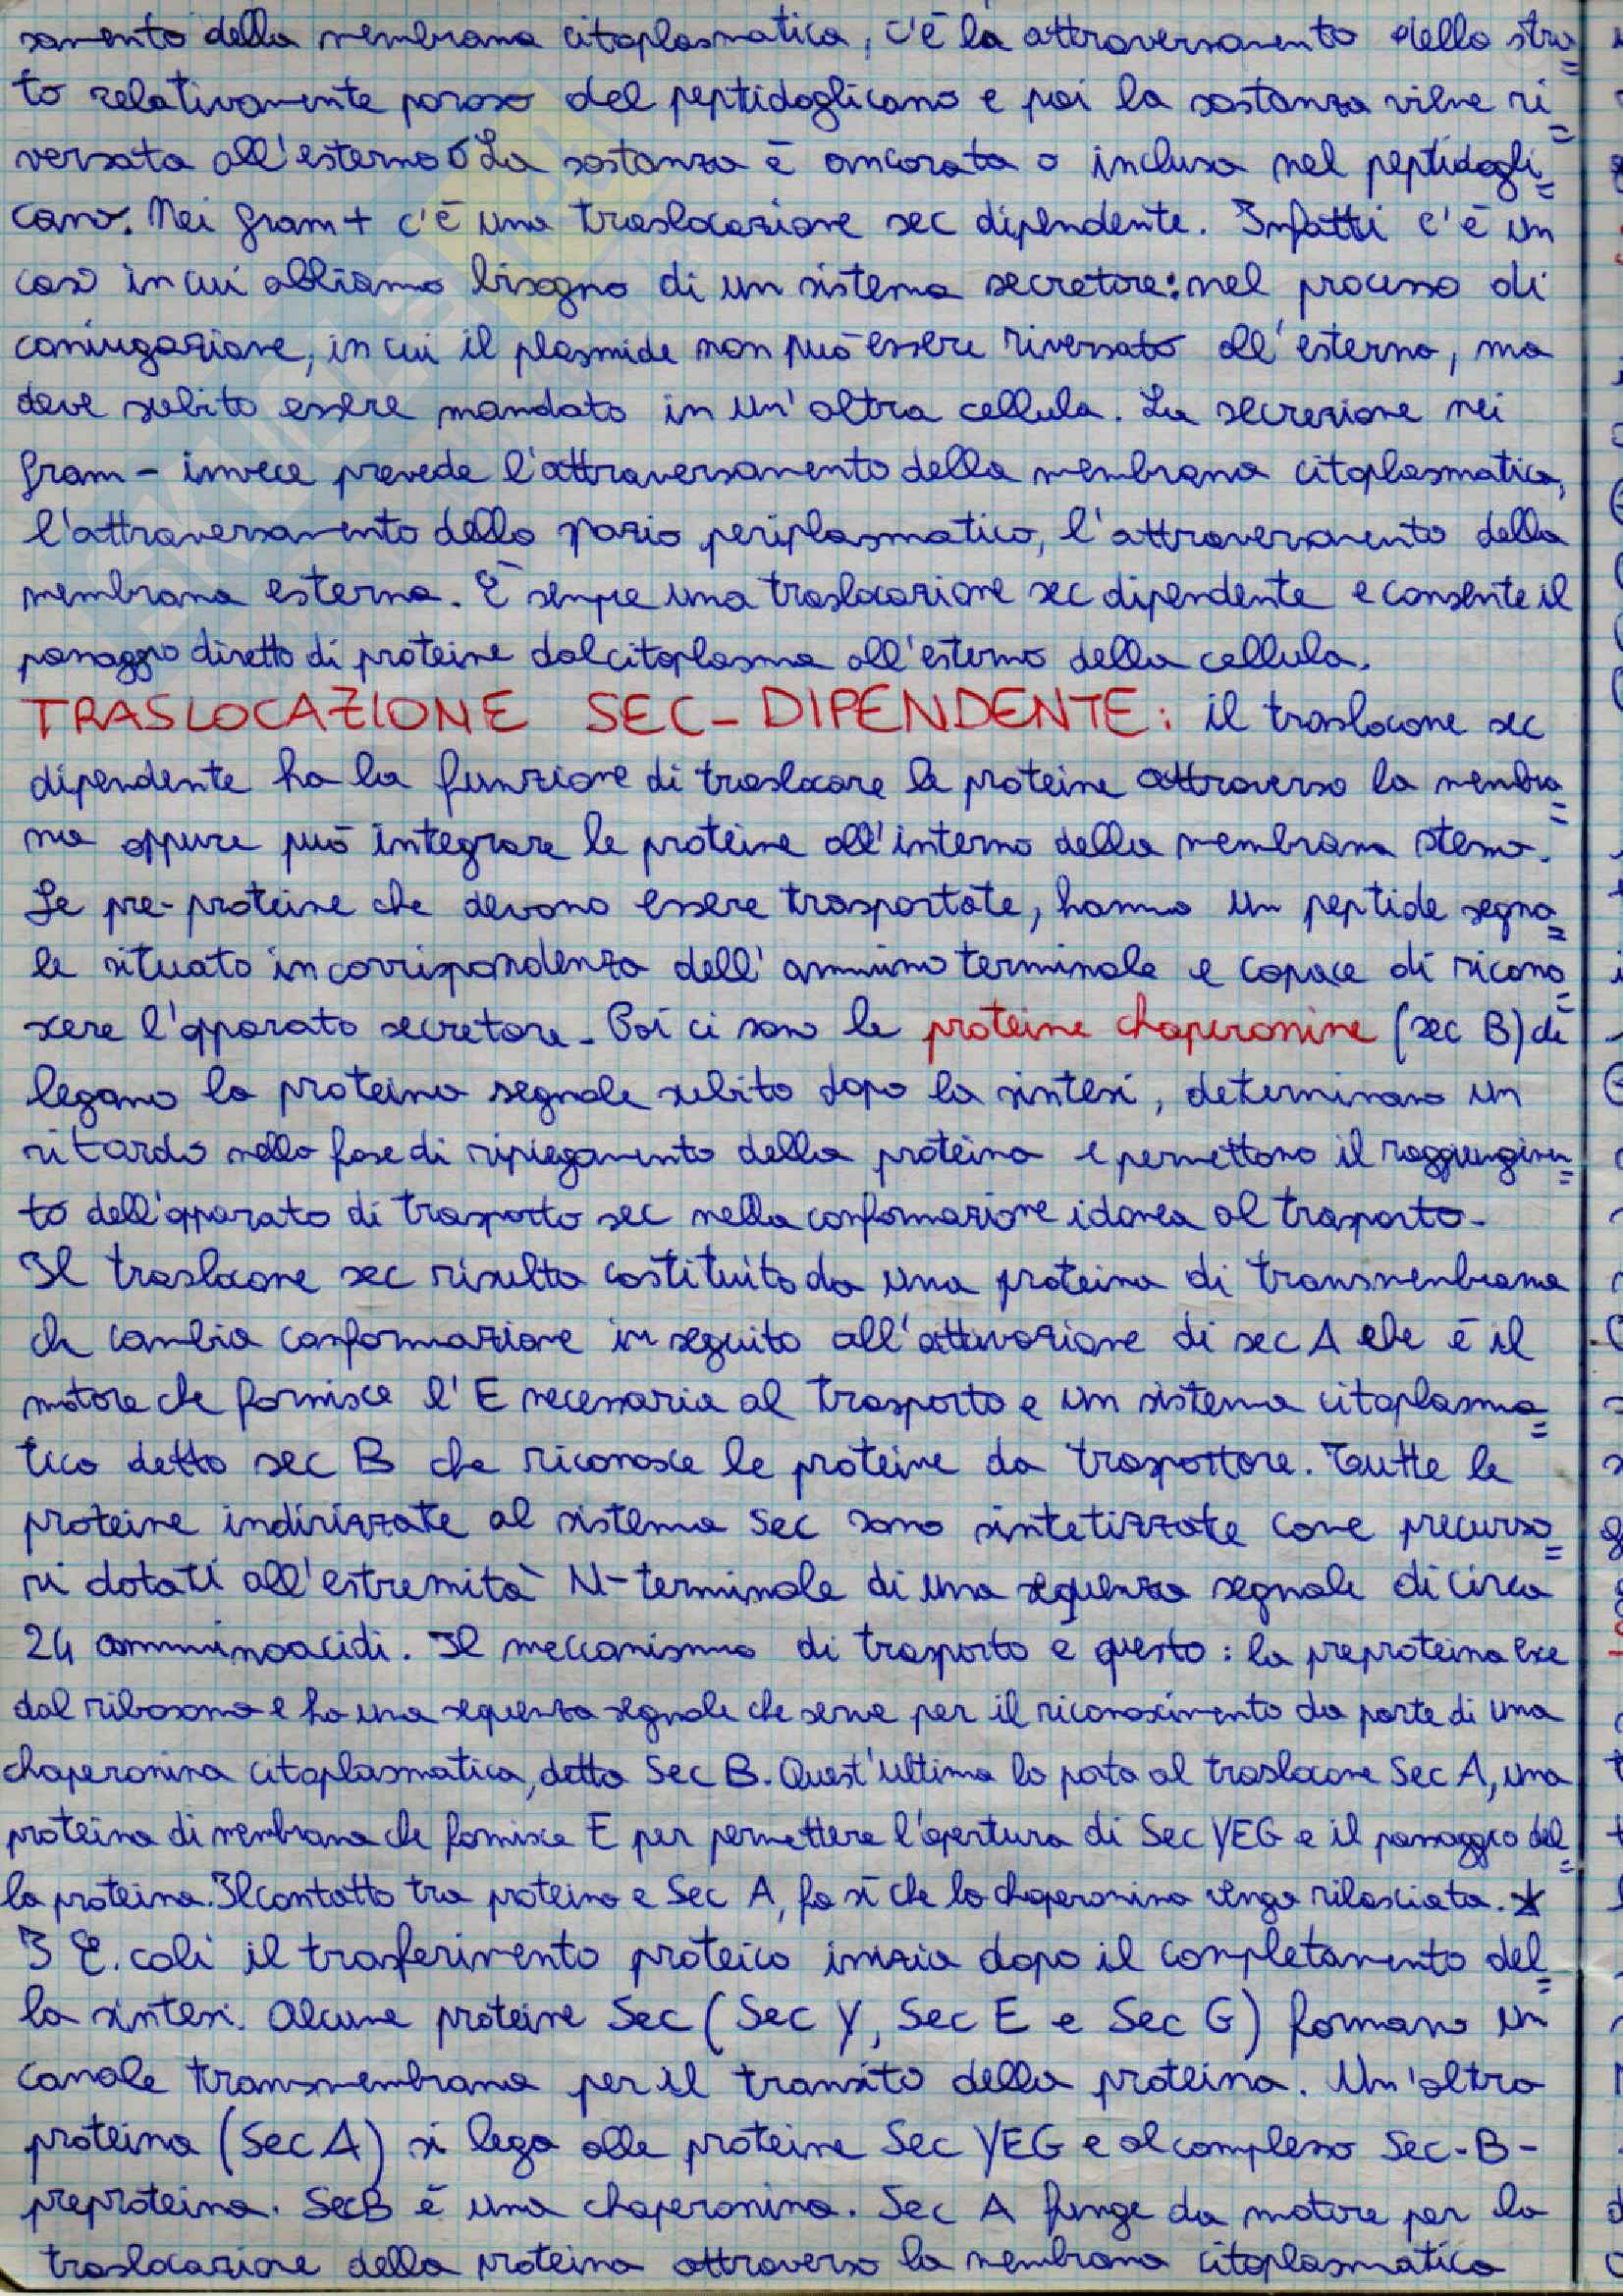 samento della membrana citoplasmatica, c'è la attraversamento dello stra=
to relativamente poroso del peptidoglicano e poi la sostanza viene ri=
versata all'esterno o La sostanza è ancorata o inclusa nel peptidogli=
cano. Nei gram + c'è una traslocazione sec dipendente. Infatti c'è un
caso in cui abbiamo bisogno di un sistema secretore: nel processo di
coniugazione, in cui il plasmide non può essere riversato all'esterno, ma
deve subito essere mandato in un'altra cellula. La secrezione nei
gram - invece prevede l'attraversamento della membrana citoplasmatica,
l'attraversamento dello spazio periplasmatico, l'attraversamento della
membrana esterna. È sempre una traslocazione sec dipendente e consente il
passaggio diretto di proteine dal citoplasma all'esterno della cellula.
TRASLOCAZIONE SEC-DIPENDENTE: il traslocone sec
dipendente ha la funzione di traslocare le proteine attraverso la membra=
na oppure può integrare le proteine all'interno della membrana stessa.
Le pre-proteine che devono essere trasportate, hanno un peptide segna=
le situato in corrispondenza dell'ammino terminale e capace di ricono=
scere l'apparato secretore. Poi ci sono le proteine chaperonine (sec B) che
legano la proteina segnale subito dopo la sintesi, determinano un
ritardo nella fase di ripiegamento della proteina e permettono il raggiungimen=
to dell'apparato di trasporto sec nella conformazione idonea al trasporto.
Il traslocone sec risulta costituito da una proteina di transmembrana
che cambia conformazione in seguito all'attivazione di sec A che è il
motore che fornisce l'E necessaria al trasporto e un sistema citoplasma=
tico detto sec B che riconosce le proteine da trasportare. Tutte le
proteine indirizzate al sistema Sec sono sintetizzate come precurso=
ri dotati all'estremità N-terminale di una sequenza segnale di circa
24 amminoacidi. Il meccanismo di trasporto è questo: la preproteina esce
dal ribosoma e ha una sequenza segnale che serve per il riconoscimento da parte di una
chaperonina citoplasmatica, detta Sec B. Quest'ultima la porta al traslocone Sec A, una
proteina di membrana che fornisce E per permettere l'apertura di Sec YEG e il passaggio del=
la proteina. Il contatto tra proteina e Sec A, fa sì che la chaperonina venga rilasciata. *
I E. coli il trasferimento proteico inizia dopo il completamento del=
la sintesi. Alcune proteine Sec (Sec Y, Sec E e Sec G) formano un
canale transmembrana per il transito della proteina. Un'altra
proteina (Sec A) si lega alle proteine Sec YEG e al complesso Sec-B-
preproteina. SecB è una chaperonina. Sec A funge da motore per la
traslocazione della proteina attraverso la membrana citoplasmatica